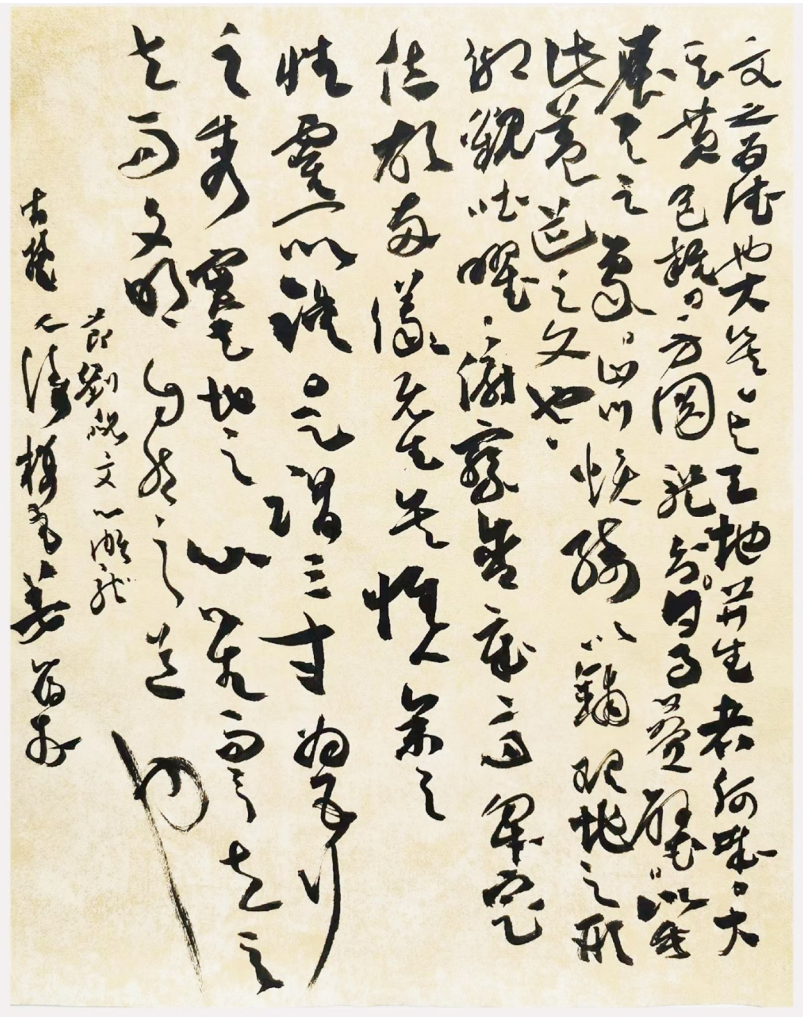 文之為德也大矣與天地并生者何哉夫
玄黃色雜方圓體分日月疊璧以垂
麗天之象山川煥綺以鋪理地之形
此蓋道之文也
仰觀吐曜俯察含章高卑定
位故兩儀既生矣惟人參之
性靈所鍾是謂三才為五行
之秀實天地之心心生而言立言
立而文明自然之道也
節劉勰文心雕龍